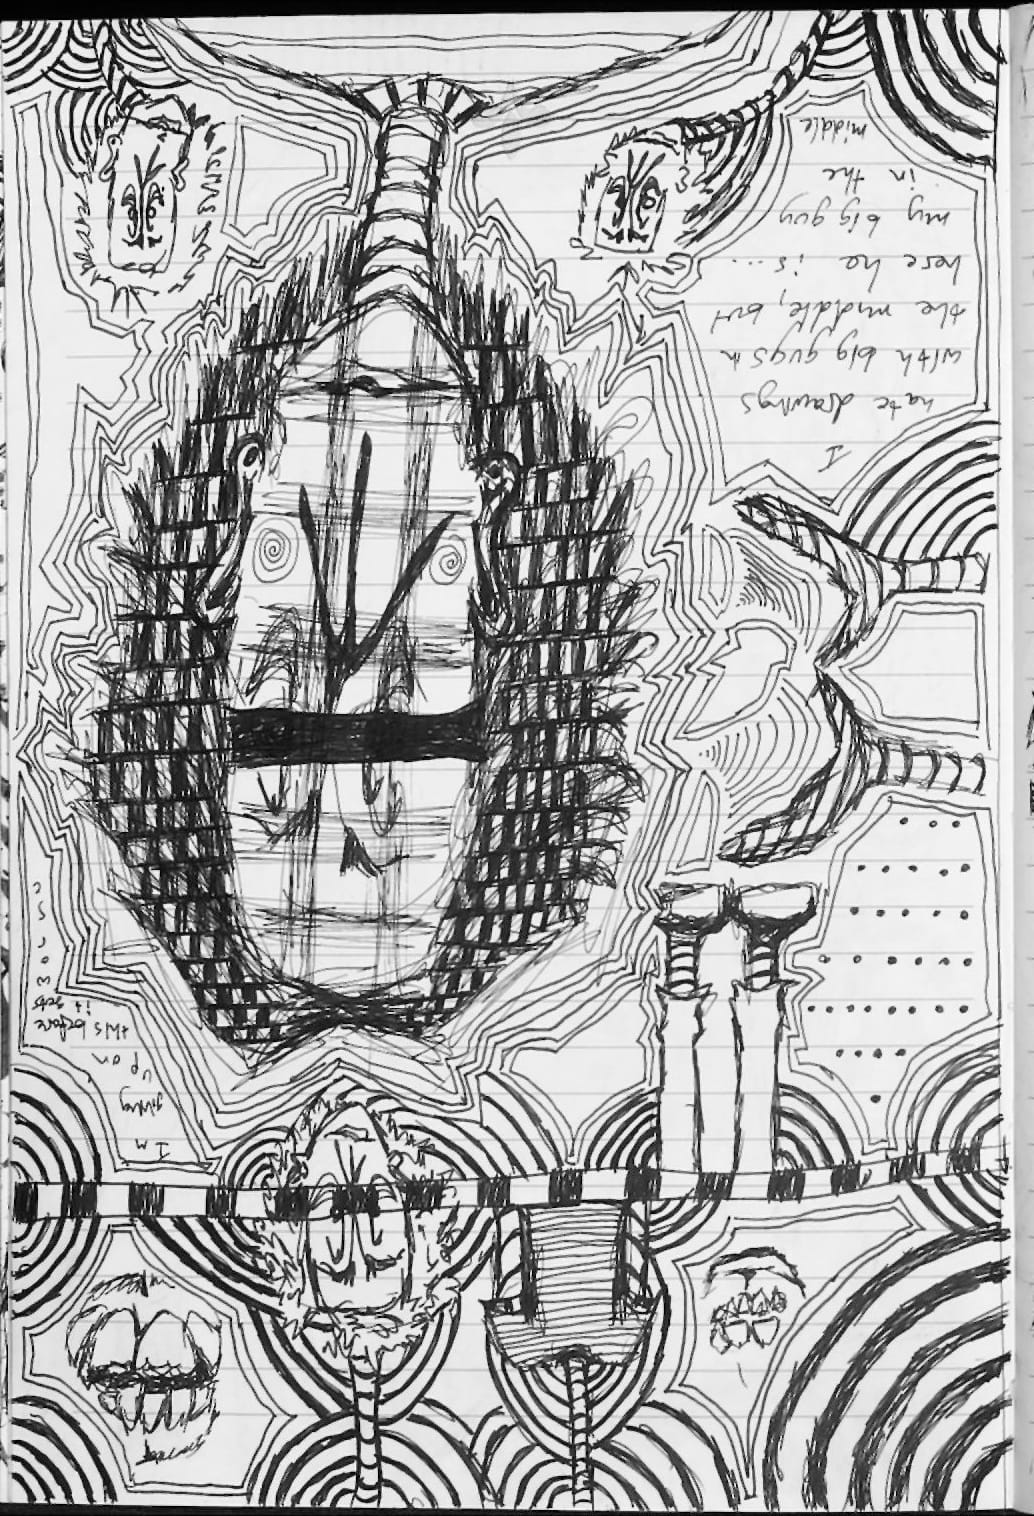 Im
giving
up on
this before
it gets
worse
I
hate drawings
with big guys in
the middle, but
here he is...
my big guy
in the
middle